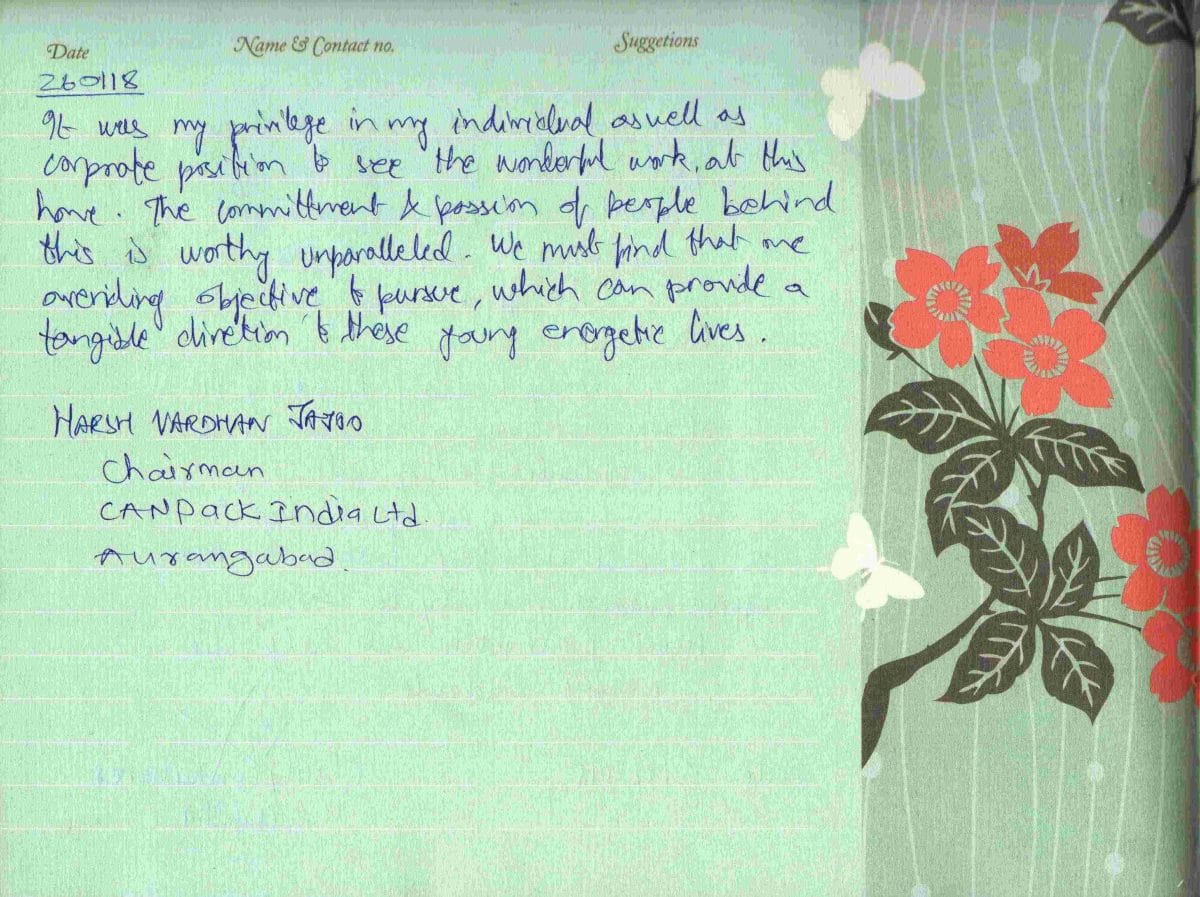 Date Name & Contact no. Suggetions
260118
It was my privilege in my individual aswell as
corporate position to see the wonderful work, at this
home. The committment & passion of people behind
this is worthy unparalleled. We must find that one
overiding objective to pursue, which can provide a
tangible direction to these young energetic lives.
HARSH VARDHAN JAJOO
Chairman
CANPACK India Ltd.
Aurangabad.